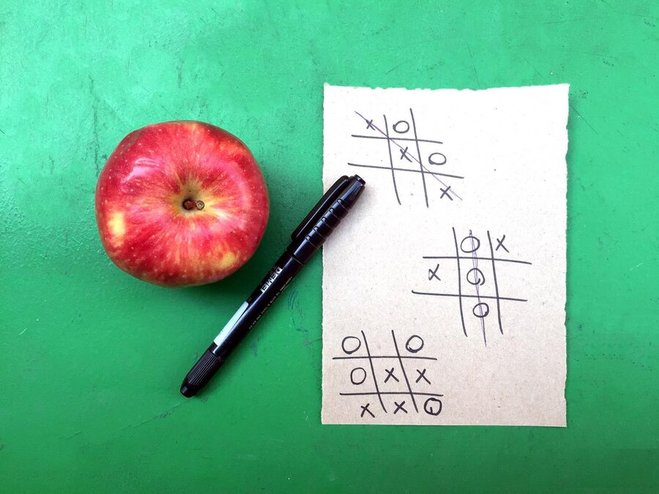 X O
X O
X
O X
X O
O
O O
O X X
X X O